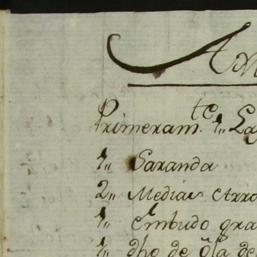 Primeram.te 1,, La
1,, Saranda
2,, Medias Arro
1,, Embudo gra
1,, dho de ôla de